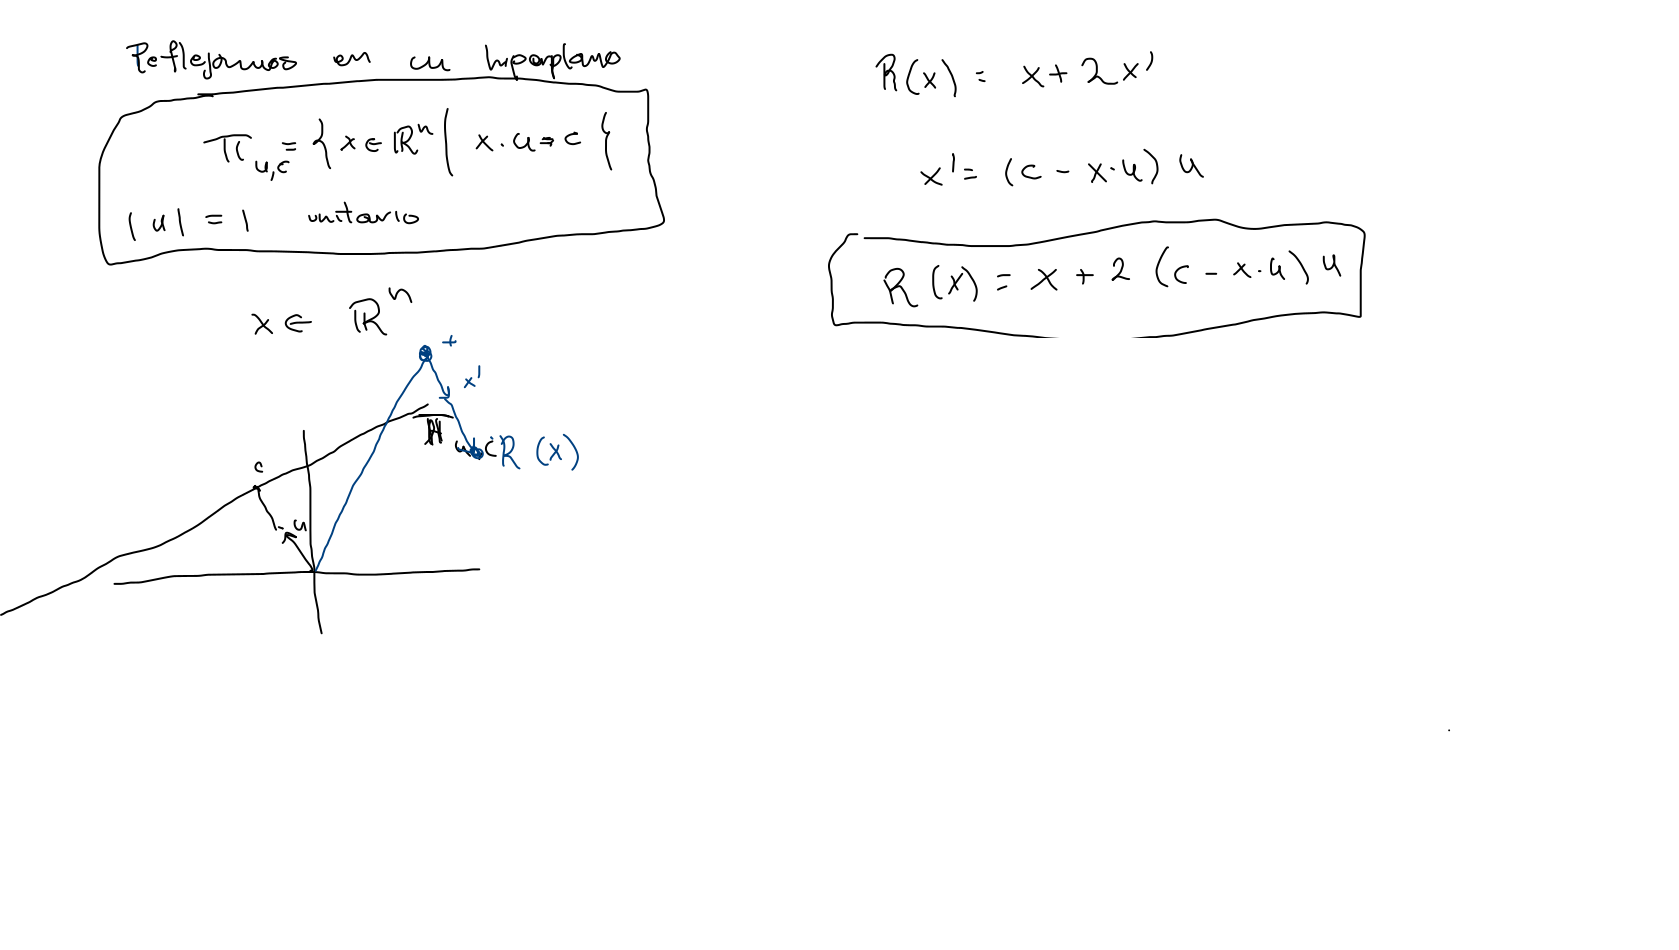 Reflejamos en un hiperplano
π_{u,c} = { x ∈ ℝⁿ | x · u = c }
|u| = 1 unitario
x ∈ ℝⁿ
x
x'
π u,c R(x)
c
u
R(x) = x + 2x'
x' = (c - x·u) u
R(x) = x + 2 (c - x·u) u